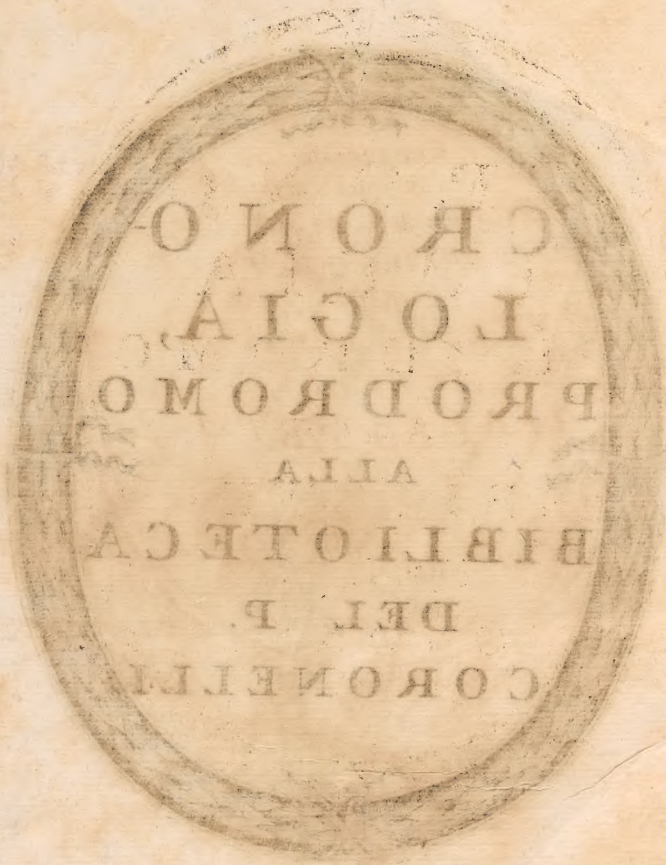 CRONO-
LOGIA,
PRODROMO
ALLA
BIBLIOTECA
DEL P.
CORONELLI.